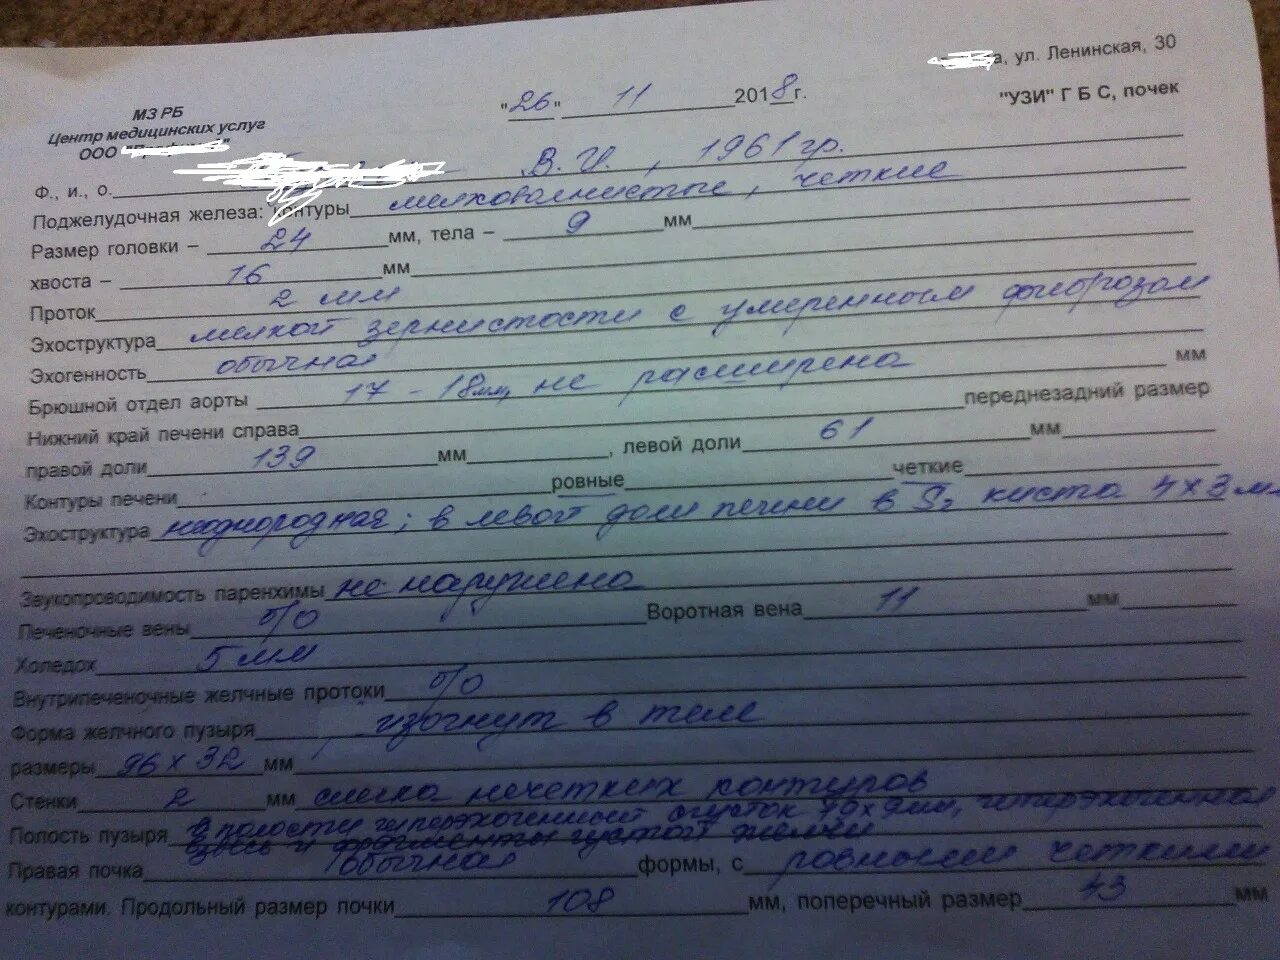 а, ул. Ленинская, 30
МЗ РБ "26" 11 2018г. "УЗИ" Г Б С, почек
Центр медицинских услуг
ООО
Ф., и., о. В.И., 1961 гр.
Поджелудочная железа: контуры мелковолнистые, четкие
Размер головки – 24 мм, тела – 9 мм
хвоста – 16 мм
Проток 2 мм
Эхоструктура мелкой зернистости с умеренным фиброзом
Эхогенность обычная
Брюшной отдел аорты 17 - 18мм, не расширена мм
Нижний край печени справа переднезадний размер
правой доли 139 мм , левой доли 61 мм
Контуры печени ровные четкие
Эхоструктура неоднородная; в левой доли печени в S2 киста 4х3 мм
Звукопроводимость паренхимы не нарушена
Печеночные вены б/о Воротная вена 11 мм
Холедох 5 мм
Внутрипеченочные желчные протоки б/о
Форма желчного пузыря изогнут в теле
размеры 96 х 32 мм
Стенки 2 мм слегка нечетких контуров
Полость пузыря в полости гиперэхогенный сгусток
взвесь и фрагменты густой желчи
Правая почка обычная формы, с ровными четкими
контурами. Продольный размер почки 108 мм, поперечный размер 43 мм